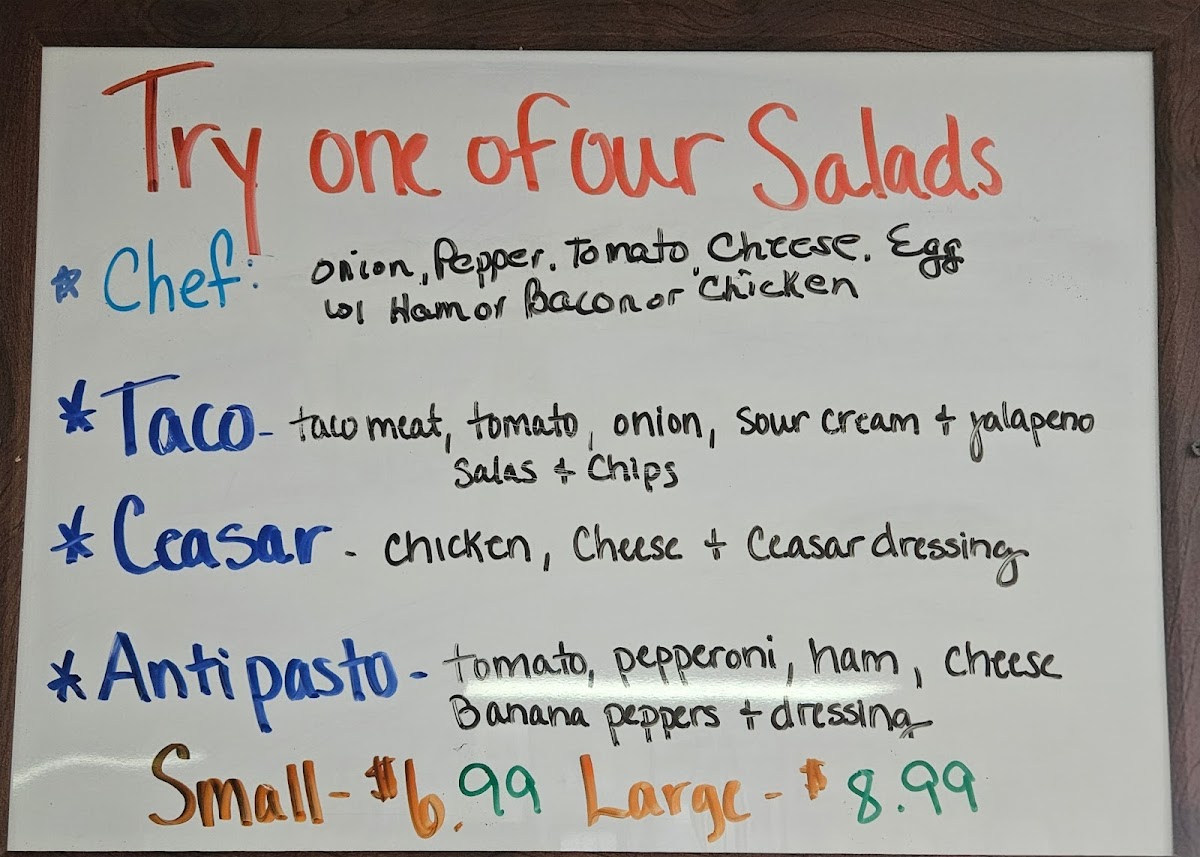 Try one of our Salads
* Chef: Onion, Pepper. Tomato, Cheese. Egg
w/ Ham or Bacon or Chicken
* Taco - taco meat, tomato, onion, sour cream + jalapeno
Salas + Chips
* Ceasar - chicken, Cheese + Ceasar dressing
* Antipasto - tomato, pepperoni, ham, cheese
Banana peppers + dressing
Small - $6.99 Large - $8.99